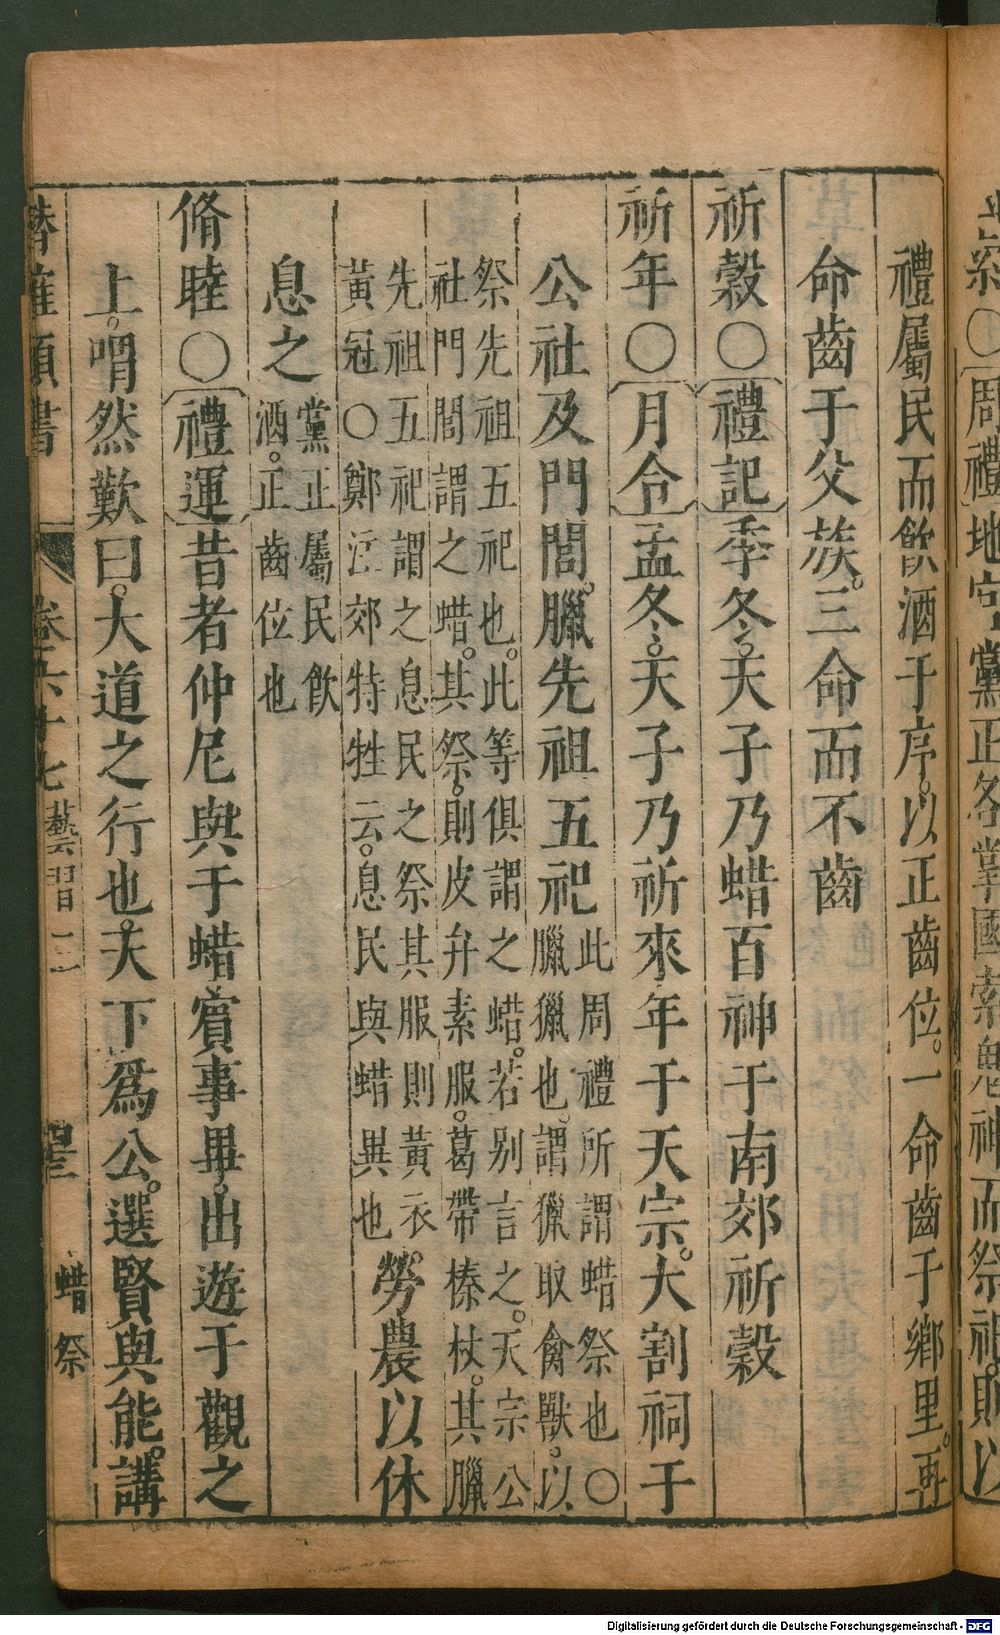 祭○周禮地官黨正各掌國索鬼神而祭祀則以
禮屬民而飲酒于序。以正齒位。一命齒于鄉里。再
命齒于父族。三命而不齒
祈穀○禮記季冬。天子乃蜡百神于南郊祈穀
祈年○月令孟冬。天子乃祈來年于天宗。大割祠于
公社及門閭。臘先祖五祀此周禮所謂蜡祭也○
臘獵也。謂獵取禽獸。以
祭先祖五祀也。此等俱謂之蜡。若别言之。天宗公
社門閭謂之蜡。其祭。則皮弁素服。葛帶榛杖。其臘
先祖五祀謂之息民之祭其服則黃衣
黃冠○鄭注郊特牲云。息民與蜡異也。勞農以休
息之黨正屬民飲
酒。正齒位也
脩睦○禮運昔者仲尼與于蜡賓事畢。出遊于觀之
上。喟然歎曰。大道之行也。天下爲公。選賢與能。講
類書 卷六十七 藝習一 蜡祭
Digitalisierung gefördert durch die Deutsche Forschungsgemeinschaft - DFG